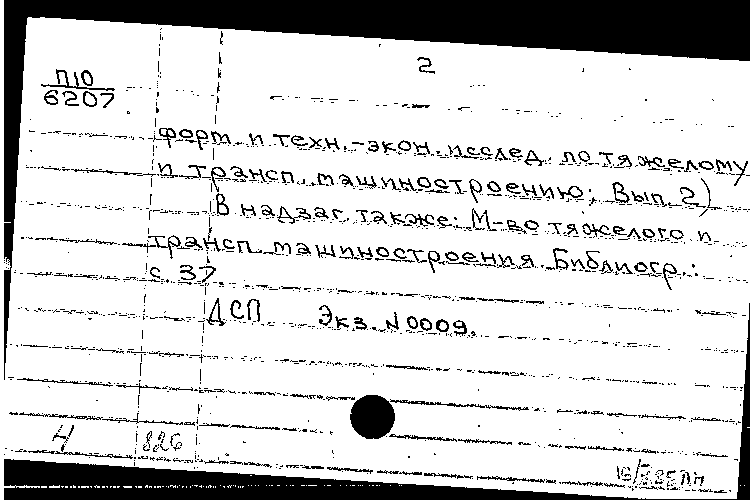 2
П10
6207
форм. и техн.-экон. исслед. по тяжелому
и трансп. машиностроению; Вып. 2)
В надзаг. также: М-во тяжелого и
трансп. машиностроения. Библиогр.:
с. 37
ДСП Экз. N0009.
4 826